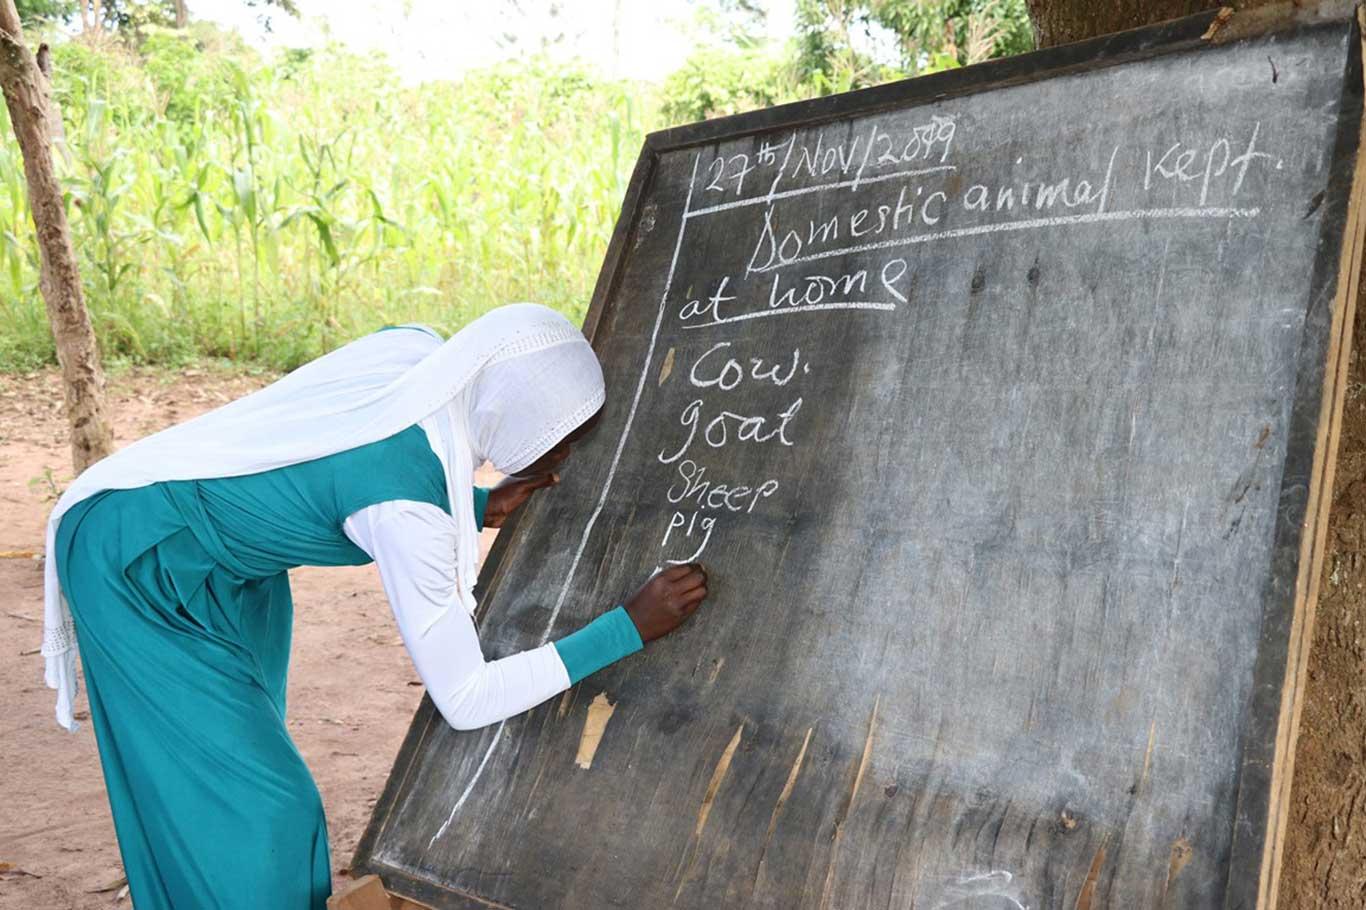 27th/Nov/2019
Domestic animal kept.
at home
Cow.
goat
Sheep
pig